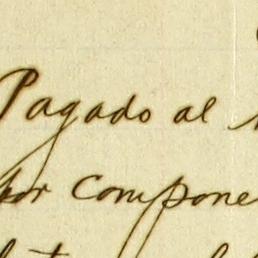 Pagado al
por compone